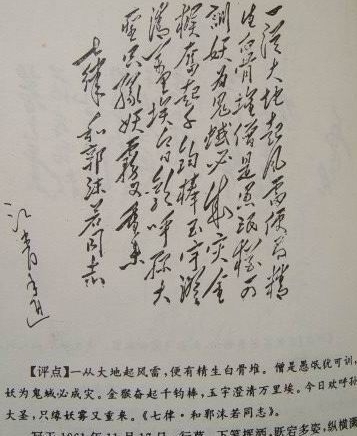 一從大地起風雷便有精
生白骨堆僧是愚氓猶可
訓妖為鬼蜮必成災金
猴奮起千鈞棒玉宇澄
清萬里埃今日歡呼孫大
聖只緣妖霧又重來
七律 和郭沫若同志
【评点】一从大地起风雷，便有精生白骨堆。僧是愚氓犹可训，
妖为鬼蜮必成灾。金猴奋起千钧棒，玉宇澄清万里埃。今日欢呼孙
大圣，只缘妖雾又重来。《七律·和郭沫若同志》。
写于1961年11月17日，行草，下笔挥洒，